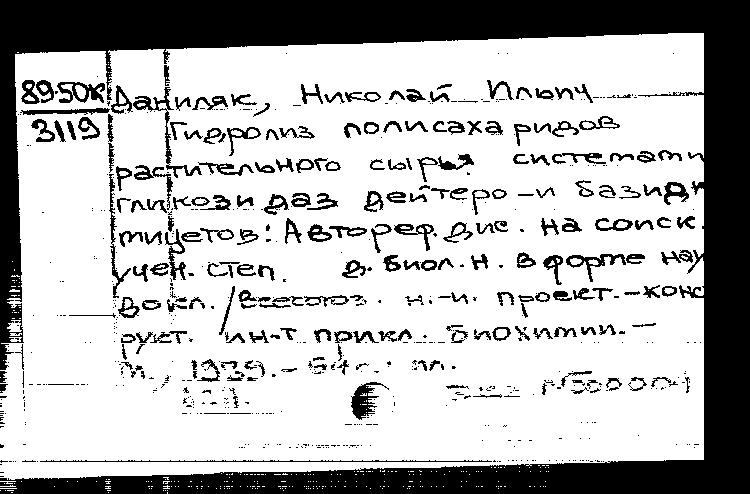 89-50К Даниляк, Николай Ильич
3119 Гидролиз полисахаридов
растительного сырья системати
гликозидаз дейтеро-и базиди
мицетов: Автореф. дис. на соиск.
учен. степ. д. биол. н. в форме нау
докл. /Всесоюз. н.-и. проект.-конс
рукт. ин-т прикл. биохимии. —
М., 1989. - 64 с.: ил.